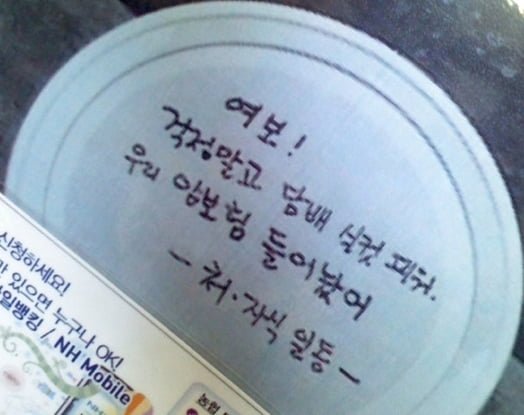 여보!
걱정말고 담배 실컷 펴워.
우리 암보험 들어놨어
- 처·자식 일동 -
신청하세요!
있으면 누구나 OK!
일뱅킹 / NH Mobile
농협